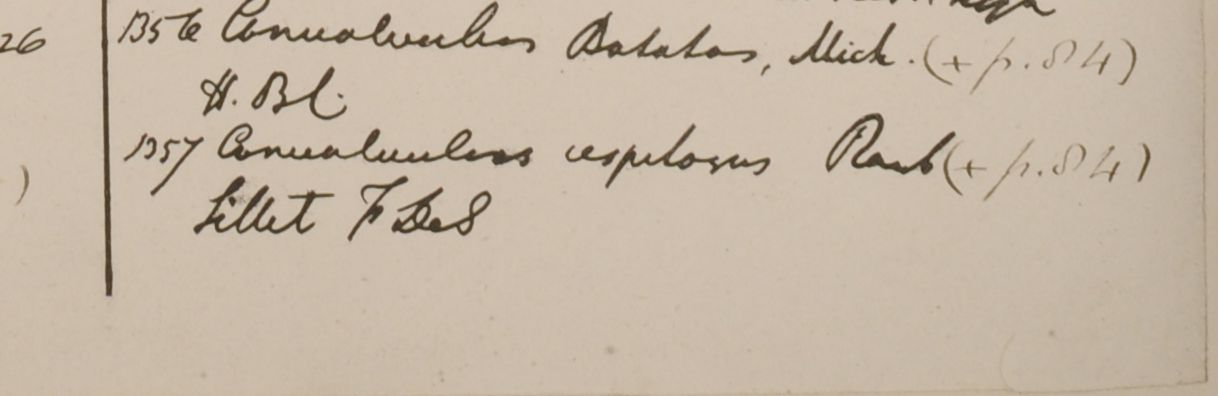 26
1356 Convolvulus Batatas, Mich. (+ p. 84)
H. Bl.
1357 Convolvulus cespitosus Roxb (+ p. 84)
)
Sillet F De S